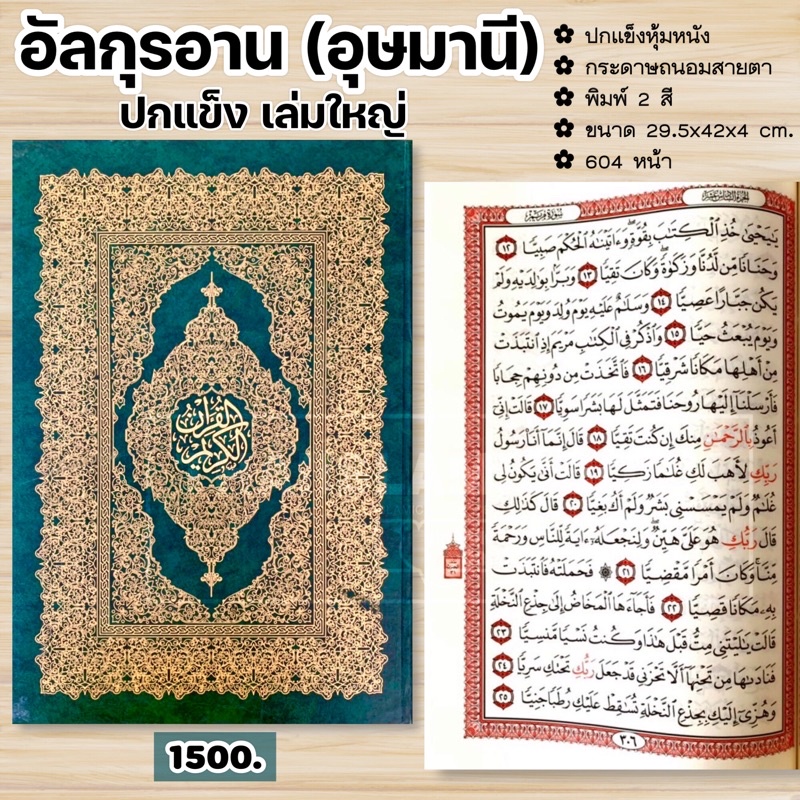 อัลกุรอาน (อุษมานี)
ปกแข็ง เล่มใหญ่
✿ ปกแข็งหุ้มหนัง
✿ กระดาษถนอมสายตา
✿ พิมพ์ 2 สี
✿ ขนาด 29.5x42x4 cm.
✿ 604 หน้า
القرآن
الكريم
1500.
سورة مريم
يَٰيَحْيَىٰ خُذِ ٱلْكِتَٰبَ بِقُوَّةٍۖ وَءَاتَيْنَٰهُ ٱلْحُكْمَ صَبِيًّا ١٢
وَحَنَانًا مِّن لَّدُنَّا وَزَكَوٰةًۖ وَكَانَ تَقِيًّا ١٣ وَبَرًّۢا بِوَٰلِدَيْهِ وَلَمْ
يَكُن جَبَّارًا عَصِيًّا ١٤ وَسَلَٰمٌ عَلَيْهِ يَوْمَ وُلِدَ وَيَوْمَ يَمُوتُ
وَيَوْمَ يُبْعَثُ حَيًّا ١٥ وَٱذْكُرْ فِى ٱلْكِتَٰبِ مَرْيَمَ إِذِ ٱنتَبَذَتْ
مِنْ أَهْلِهَا مَكَانًا شَرْقِيًّا ١٦ فَٱتَّخَذَتْ مِن دُونِهِمْ حِجَابًا
فَأَرْسَلْنَآ إِلَيْهَا رُوحَنَا فَتَمَثَّلَ لَهَا بَشَرًا سَوِيًّا ١٧ قَالَتْ إِنِّىٓ
أَعُوذُ بِٱلرَّحْمَٰنِ مِنكَ إِن كُنتَ تَقِيًّا ١٨ قَالَ إِنَّمَآ أَنَا۠ رَسُولُ
رَبِّكِ لِأَهَبَ لَكِ غُلَٰمًا زَكِيًّا ١٩ قَالَتْ أَنَّىٰ يَكُونُ لِى
غُلَٰمٌ وَلَمْ يَمْسَسْنِى بَشَرٌ وَلَمْ أَكُ بَغِيًّا ٢٠ قَالَ كَذَٰلِكِ
قَالَ رَبُّكِ هُوَ عَلَىَّ هَيِّنٌۖ وَلِنَجْعَلَهُۥٓ ءَايَةً لِّلنَّاسِ وَرَحْمَةً
مِّنَّاۚ وَكَانَ أَمْرًا مَّقْضِيًّا ٢١ ۞ فَحَمَلَتْهُ فَٱنتَبَذَتْ
بِهِۦ مَكَانًا قَصِيًّا ٢٢ فَأَجَآءَهَا ٱلْمَخَاضُ إِلَىٰ جِذْعِ ٱلنَّخْلَةِ
قَالَتْ يَٰلَيْتَنِى مِتُّ قَبْلَ هَٰذَا وَكُنتُ نَسْيًا مَّنسِيًّا ٢٣
فَنَادَىٰهَا مِن تَحْتِهَآ أَلَّا تَحْزَنِى قَدْ جَعَلَ رَبُّكِ تَحْتَكِ سَرِيًّا ٢٤
وَهُزِّىٓ إِلَيْكِ بِجِذْعِ ٱلنَّخْلَةِ تُسَٰقِطْ عَلَيْكِ رُطَبًا جَنِيًّا ٢٥
٣٠٦